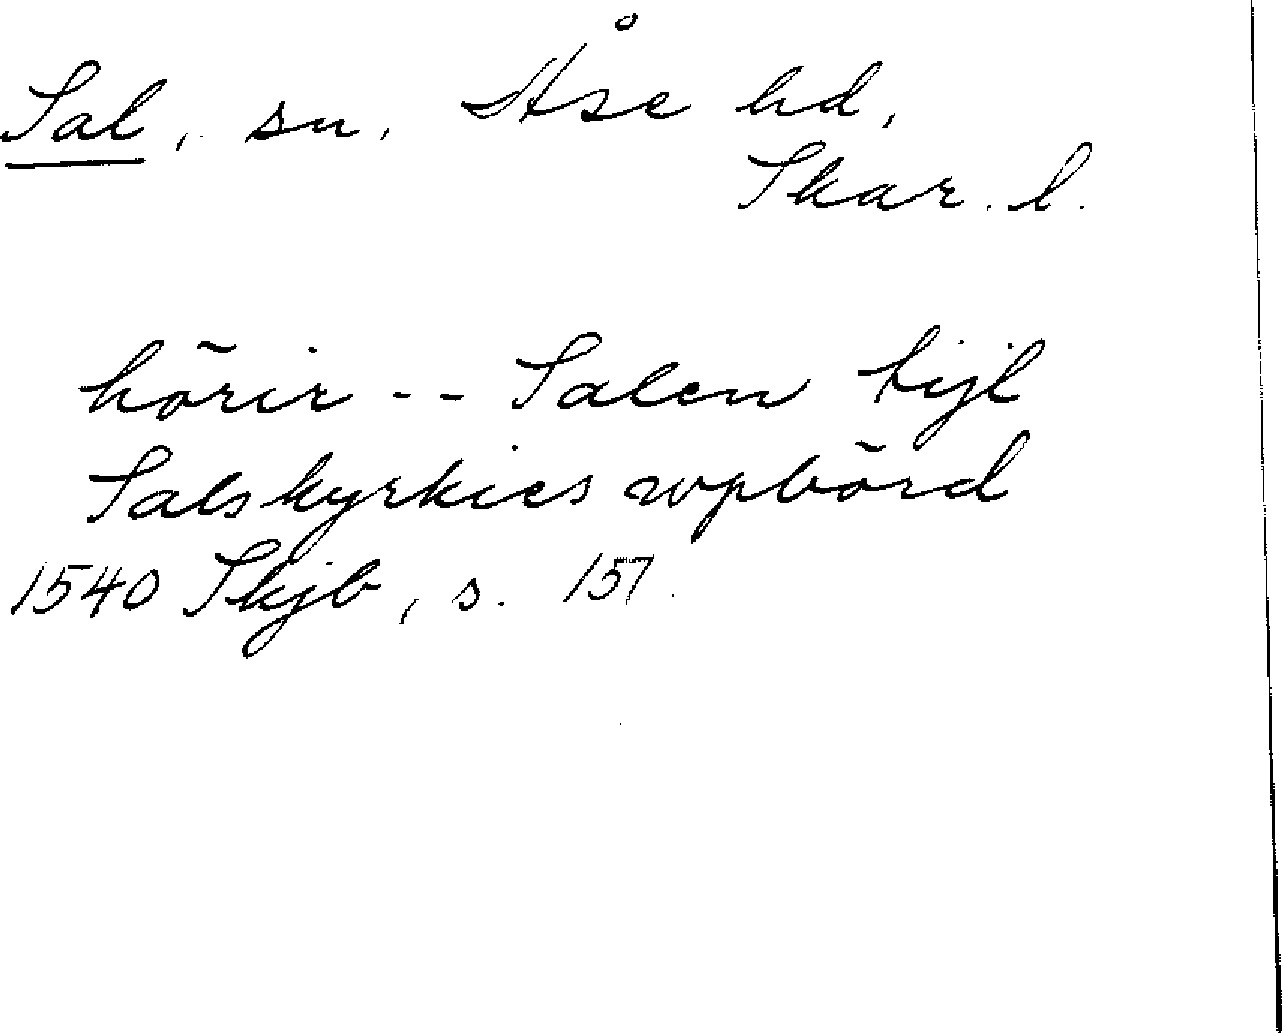 Sal, sn, Åse hd,
Skar. l.
hörir -- Salen tijl
Salskyrkies wpbörd
1540 Skjb, s. 157.